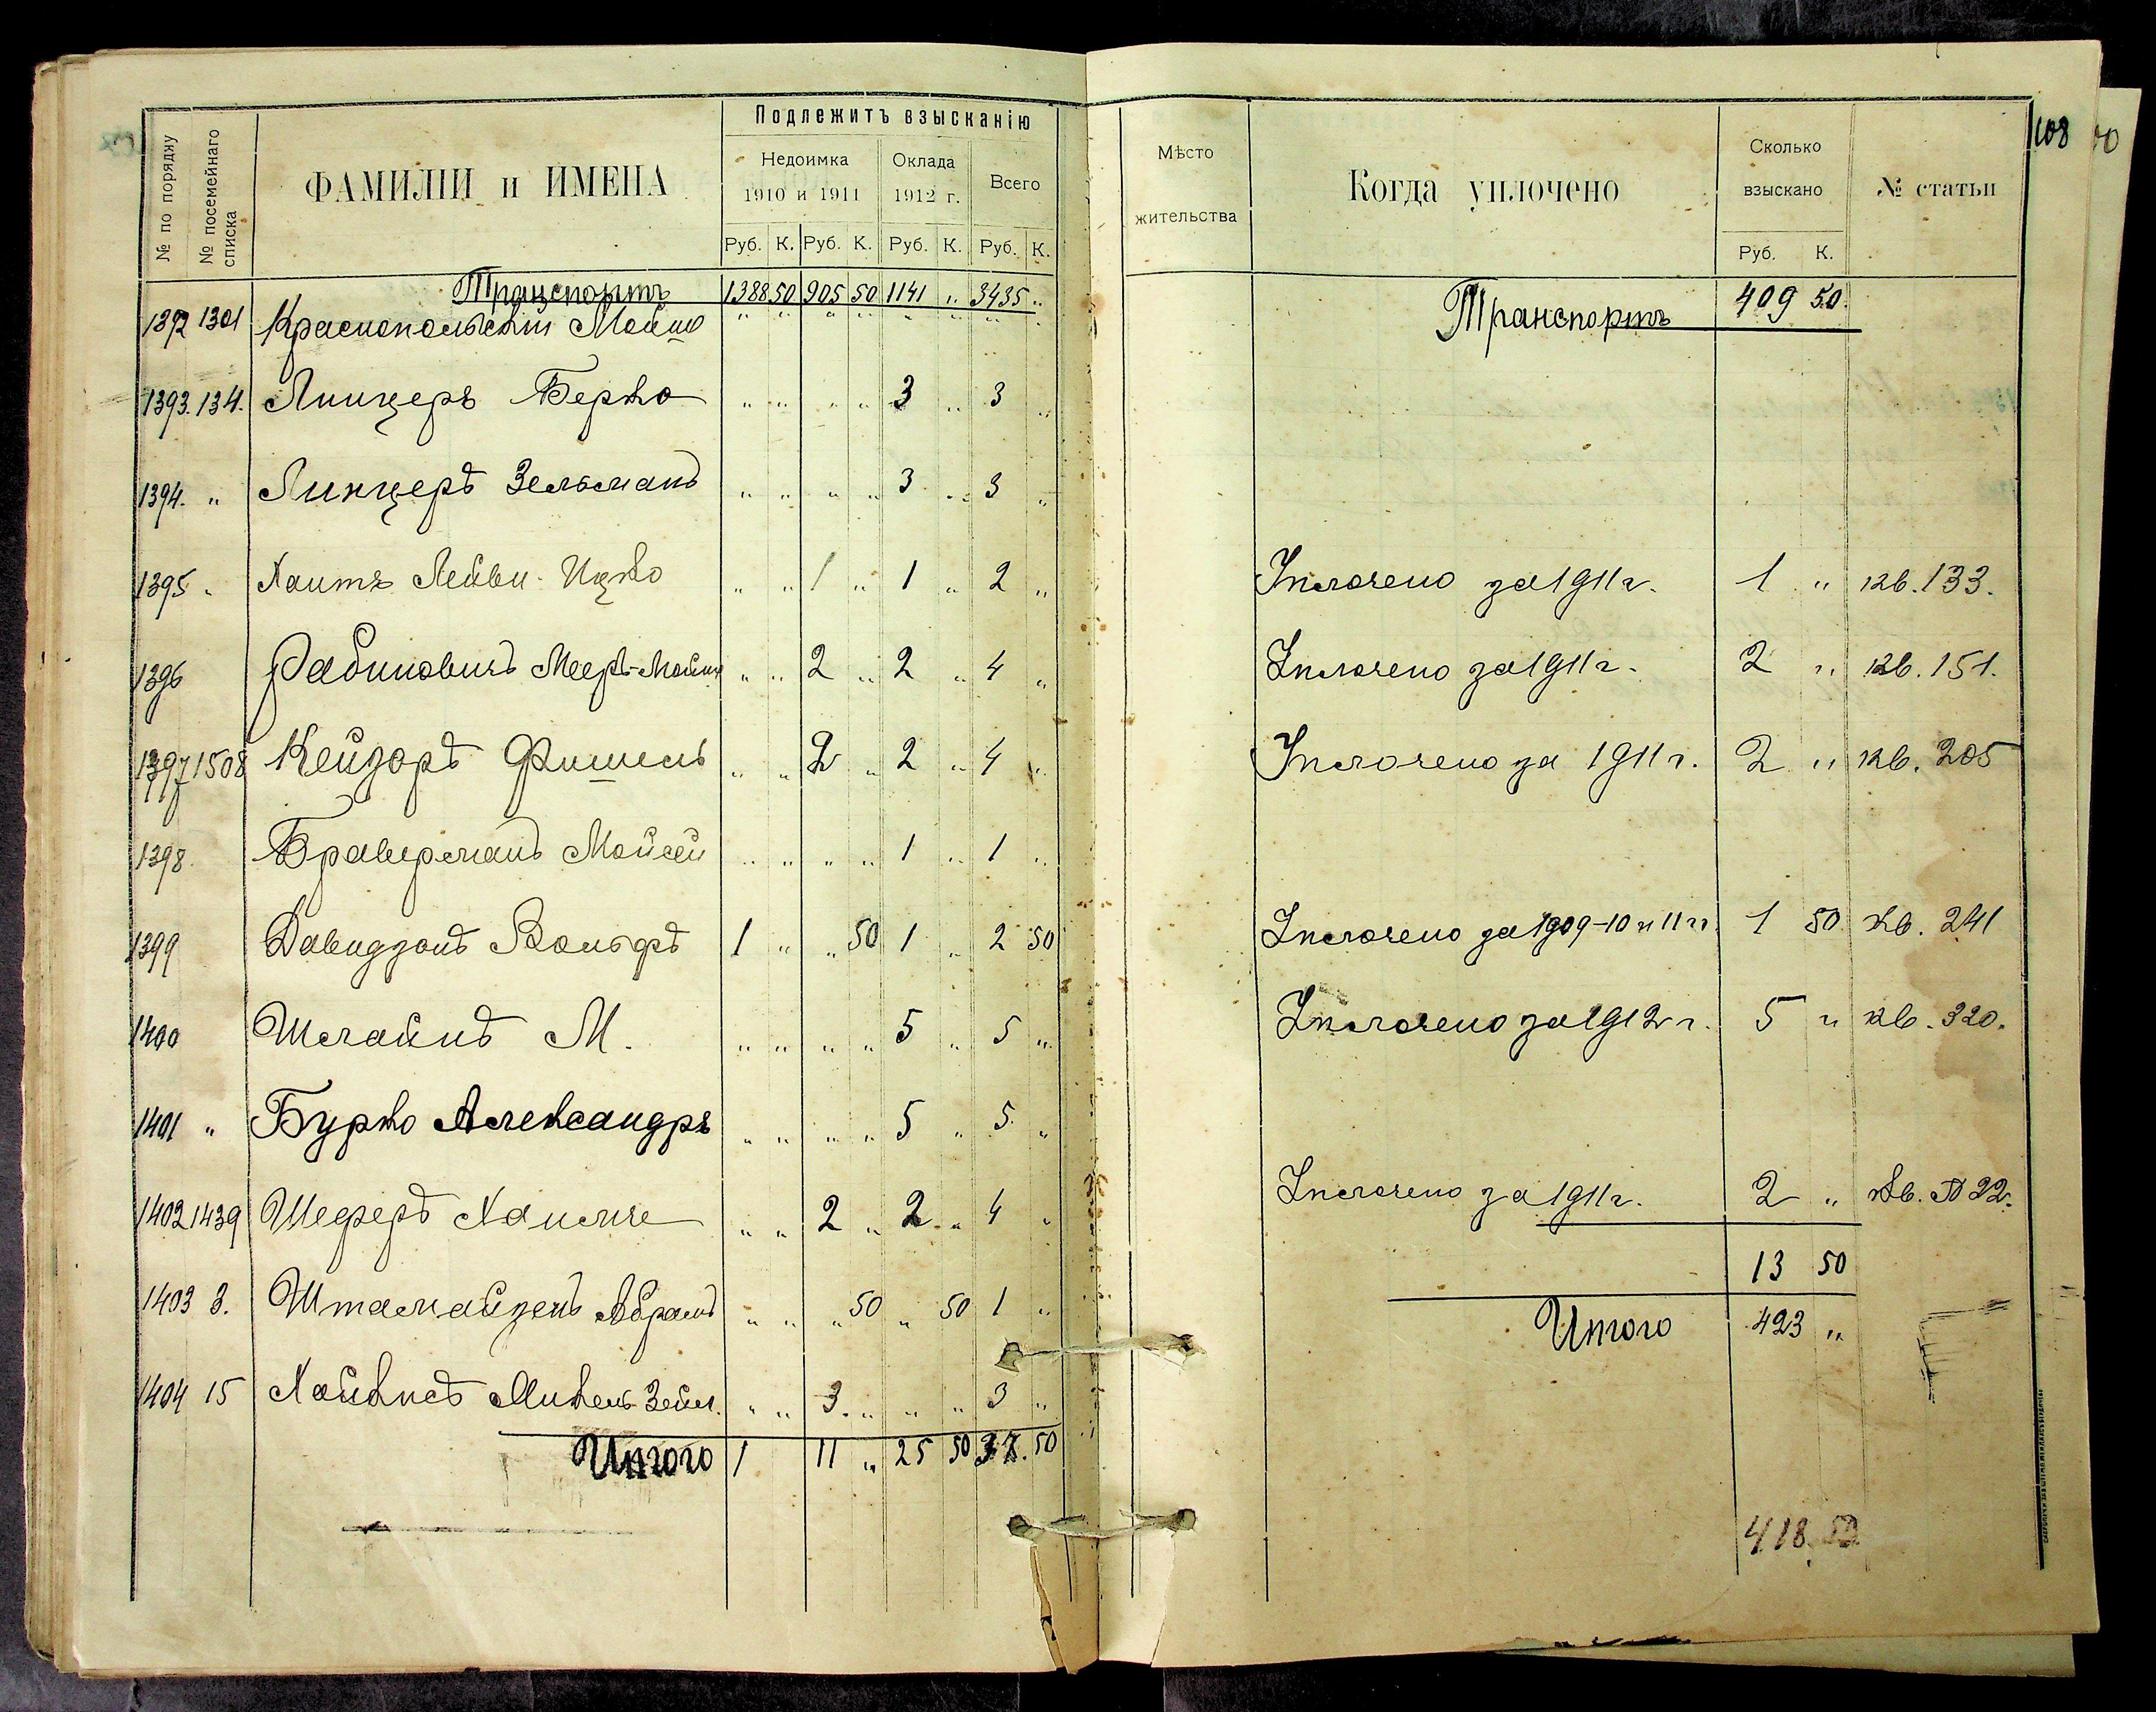 108
№ по порядку
№ посемейнаго списка
ФАМИЛІИ и ИМЕНА
Подлежитъ взысканію
Недоимка 1910 и 1911
Оклада 1912 г.
Всего
Руб. К. Руб. К. Руб. К. Руб. К.
Мѣсто жительства
Когда уплочено
Сколько взыскано
Руб. К.
№ статьи
Транспортъ 1388 50 905 50 1141 " 3435 " Транспортъ 409 50.
1392 1301 Краснопольскій Мойше " " " " " " " "
1393. 134. Линцеръ Берко " " " " 3 " 3 "
1394. " Линцеръ Зельманъ " " " " 3 " 3 "
1395 " Хаитъ Лейви-Ицко " " 1 " 1 " 2 " Уплочено за 1911 г. 1 " кв. 133.
1396 Рабиновичъ Мееръ-Мойше " " 2 " 2 " 4 " Уплочено за 1911 г. 2 " кв. 151.
1397 1508 Кейзоръ Фишель " " 2 " 2 " 4 " Уплочено за 1911 г. 2 " кв. 205
1398. Браверманъ Мойсей " " " " 1 " 1 "
1399 Давидзонъ Вольфъ 1 " " 50 1 " 2 50 Уплочено за 1909-10 и 11 гг. 1 50 кв. 241
1400 Шлаинъ М. " " " " 5 " 5 " Уплочено за 1912 г. 5 " кв. 320.
1401 " Бурко Александръ " " " " 5 " 5 "
1402 1439 Шеферъ " " 2 " 2 " 4 " Уплочено за 1911 г. 2 " кв. 22.
13 50
1403 3. Абрамъ " " " 50 " 50 1 "
Итого 423 "
1404 15 Хайкисъ Микель-Зейл. " " 3. " " " 3 "
Итого 1 11 " 25 50 37. 50
418. 50